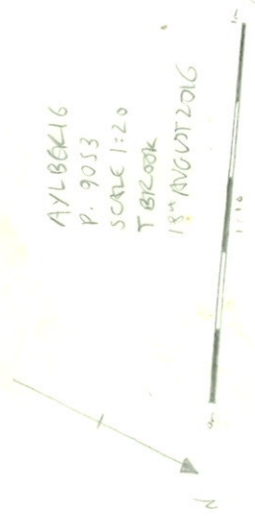 AYLBGR16
P. 9053
SCALE 1:20
T BROOK
18th AUGUST 2016
0m
1:10
1m
N